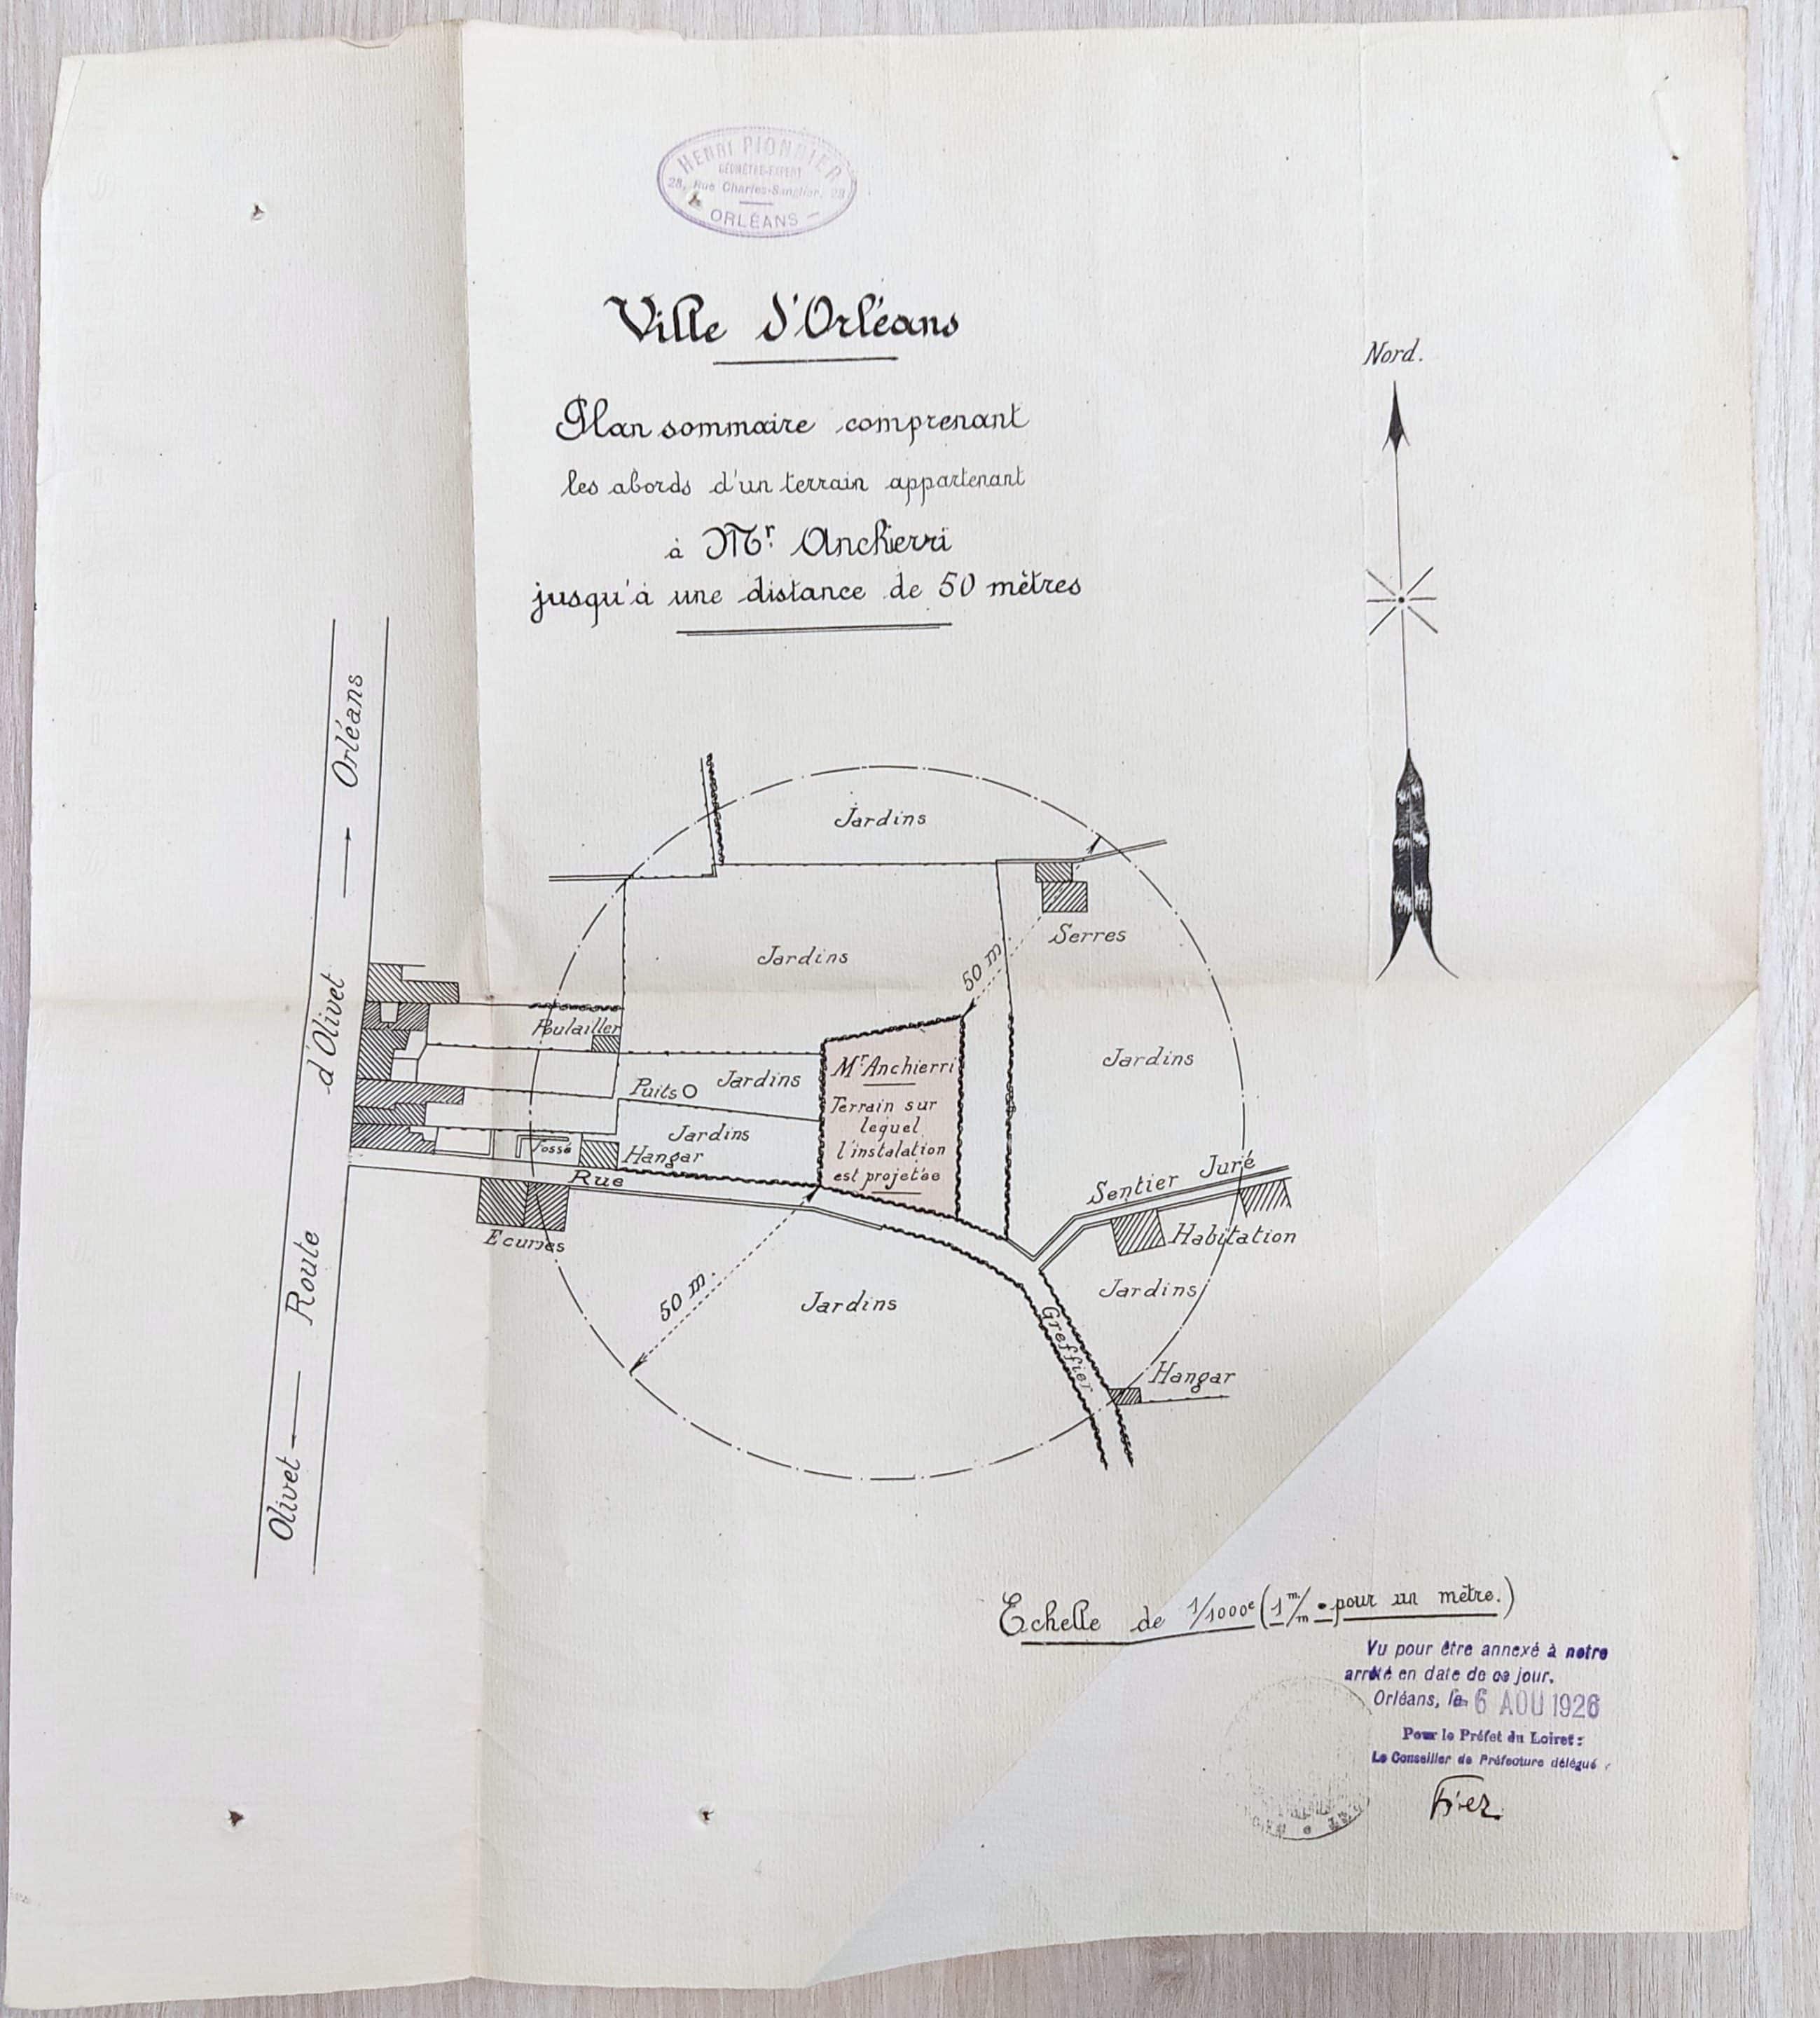 HENRI PIONNIER
GÉOMÈTRE-EXPERT
28, Rue Charles-Sanglier, 28
ORLÉANS
Ville d'Orléans
Plan sommaire comprenant
les abords d'un terrain appartenant
à Mr. Anchierri
jusqu'à une distance de 50 mètres
Nord.
Orléans
Route d'Olivet
Olivet
Jardins
Serres
Jardins
50 m.
Poulailler
Jardins
Mr Anchierri
Terrain sur
lequel
l'instalation
est projetée
Puits
Jardins
Jardins
Fossé
Hangar
Rue
Sentier Juré
Ecuries
Habitation
50 m.
Jardins
Jardins
Greffier
Hangar
Echelle de 1/1000e (1 m/m pour un mètre.)
Vu pour être annexé à notre
arrêté en date de ce jour.
Orléans, le 6 AOU 1926
Pour le Préfet du Loiret :
Le Conseiller de Préfecture délégué